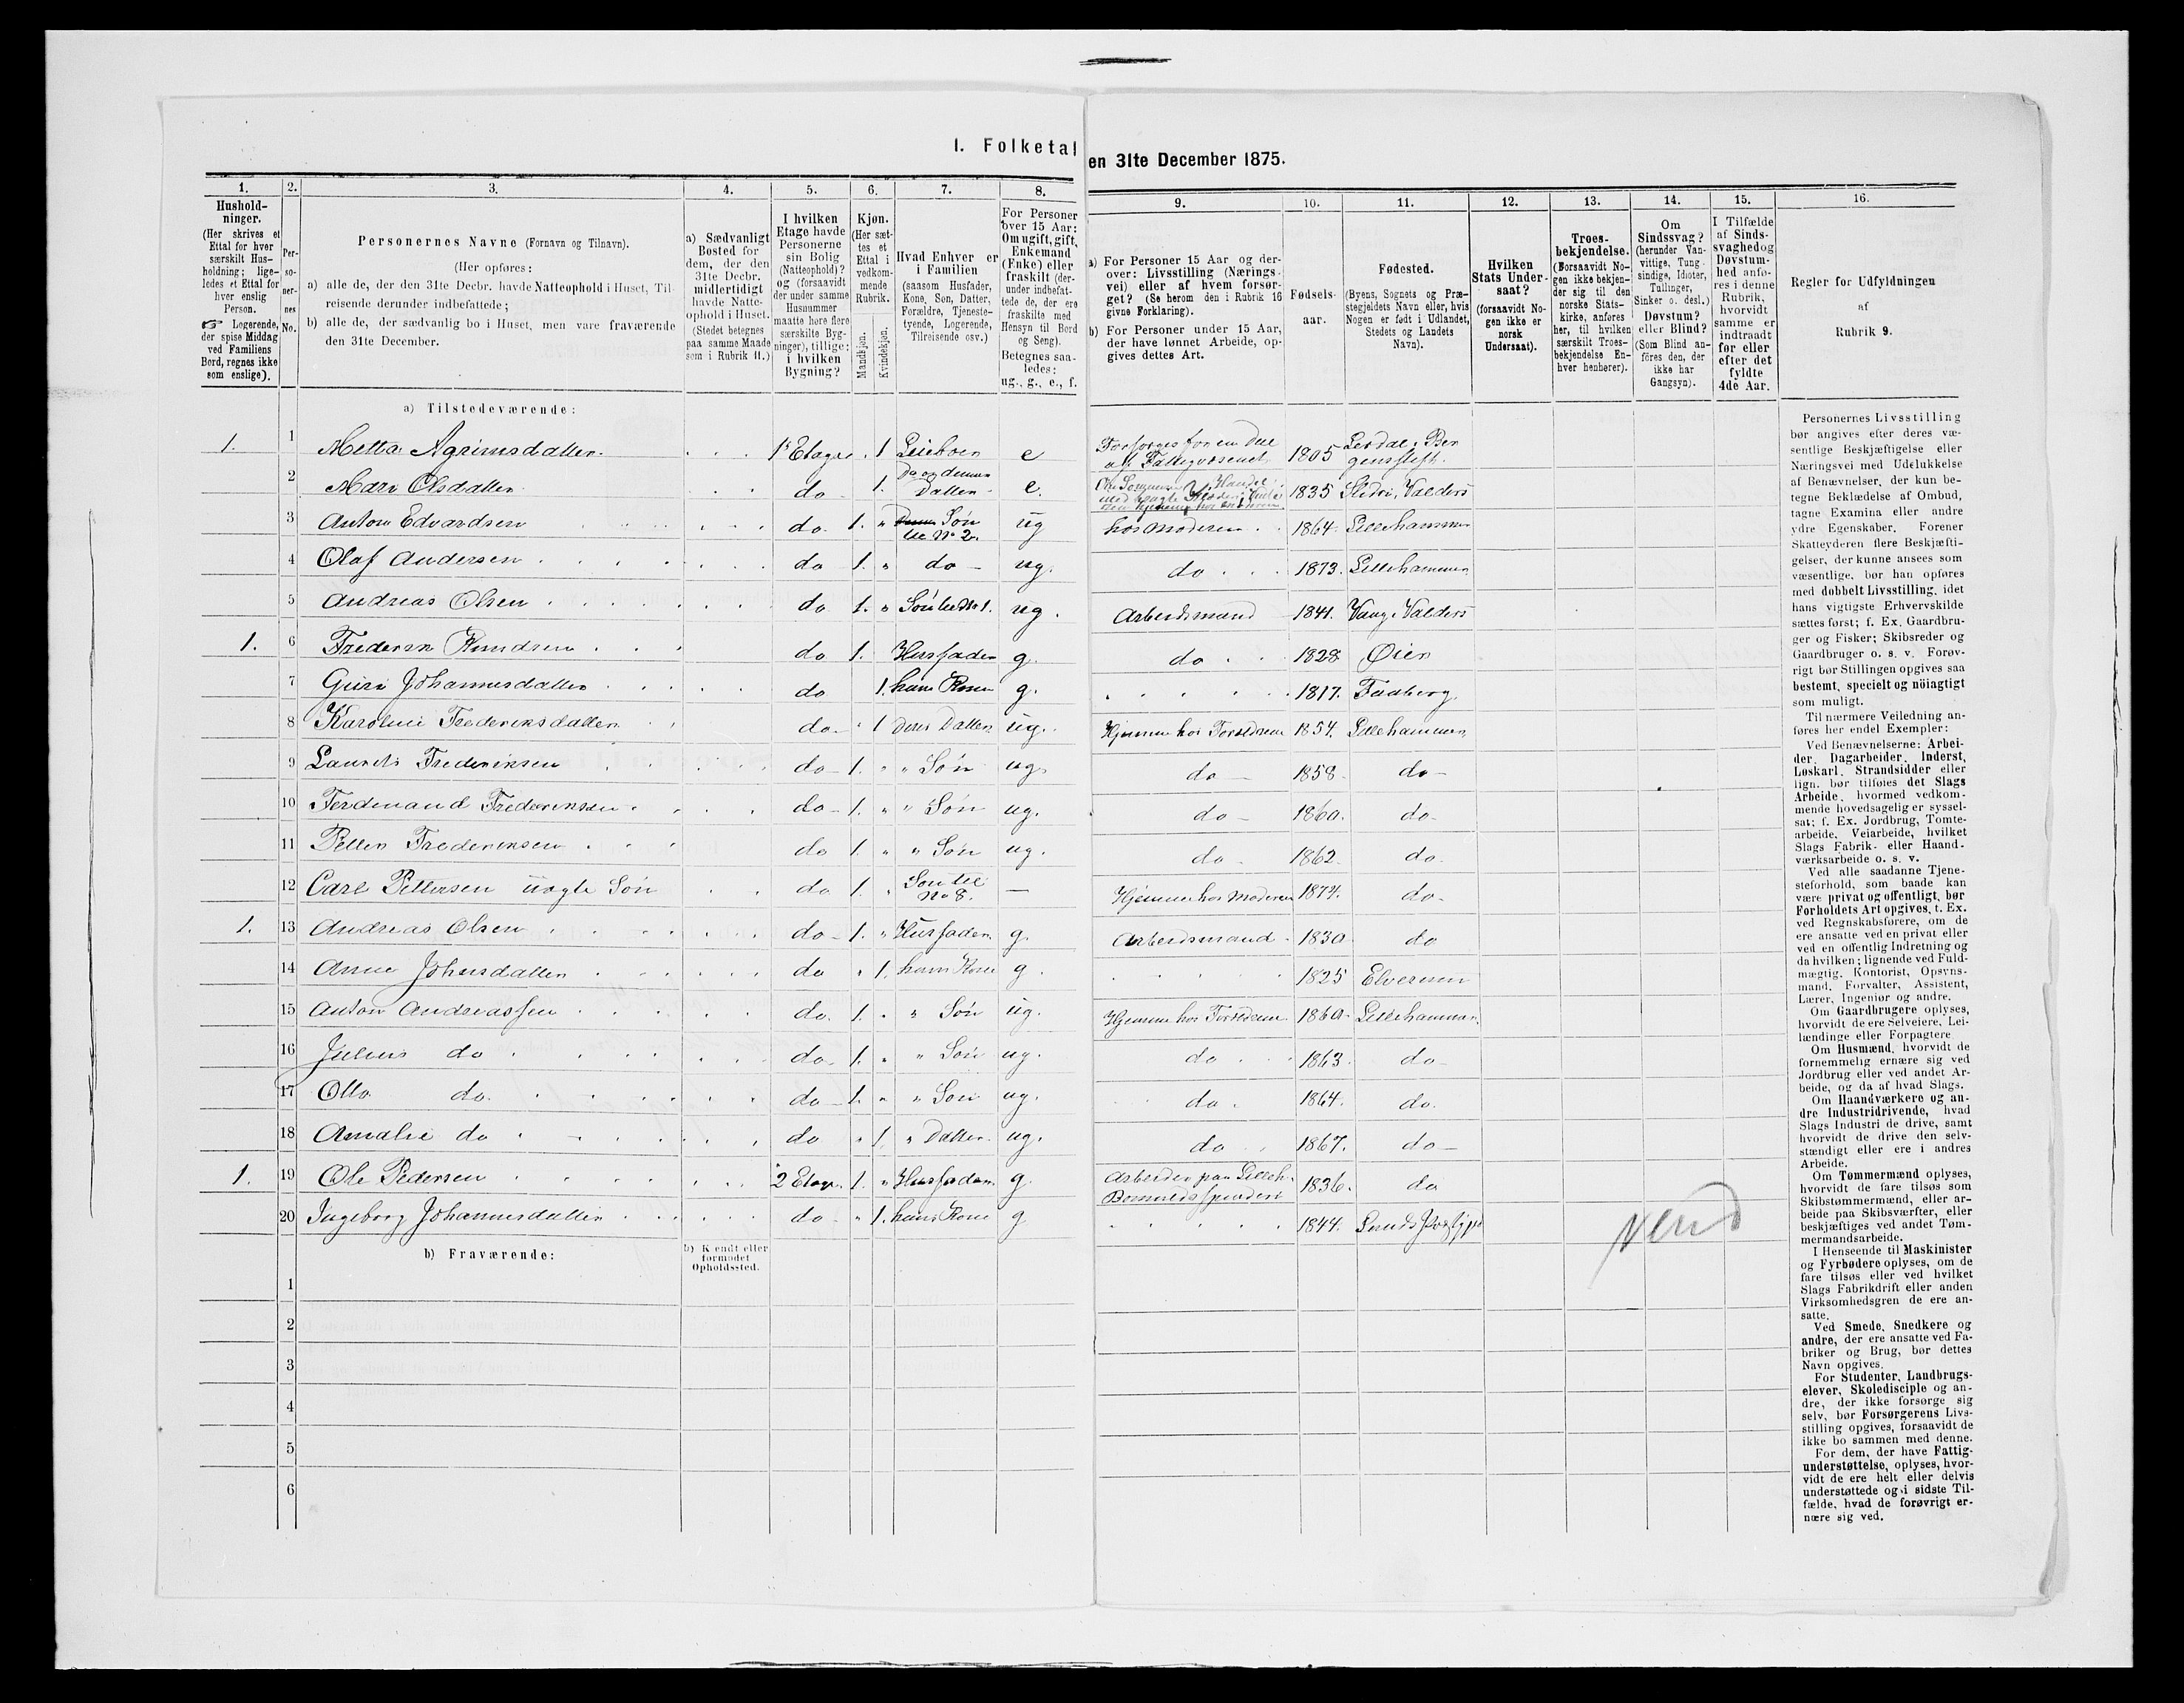 I. Folketal
en 31te December 1875.
1. 2. 3. 4. 5. 6. 7. 8. 9. 10. 11. 12. 13. 14. 15. 16.
Hushold-
ninger.
(Her skrives et
Ettal for hver
særskilt Hus-
holdning; lige-
ledes et Ettal for
hver enslig
Person.
☞ Logerende,
der spise Middag
ved Familiens
Bord, regnes ikke
som enslige).
Per-
so-
ner-
nes
No.
Personernes Navne (Fornavn og Tilnavn).
(Her opføres:
a) alle de, der den 31te Decbr. havde Natteophold i Huset, Til-
reisende derunder indbefattede;
b) alle de, der sædvanlig bo i Huset, men vare fraværende
den 31te December.
a) Sædvanligt
Bosted for
dem, der den
31te Decbr.
midlertidigt
havde Natte-
ophold i Huset.
(Stedet betegnes
paa samme Maade
som i Rubrik 11.)
I hvilken
Etage havde
Personerne
sin Bolig
(Natteophold)?
og (forsaavidt
der under samme
Husnummer
maatte høre flere
særskilte Byg-
ninger), tillige:
i hvilken
Bygning?
Kjøn.
(Her sæt-
tes et
Ettal i
vedkom-
mende
Rubrik.
Mandkjøn.
Kvindekjøn.
Hvad Enhver er
i Familien
(saasom Husfader,
Kone, Søn, Datter,
Forældre, Tjeneste-
tyende, Logerende,
Tilreisende osv.)
For Personer
over 15 Aar:
Om ugift, gift,
Enkemand
(Enke) eller
fraskilt (der-
under indbefat-
tede de, der ere
fraskilte med
Hensyn til Bord
og Seng).
Betegnes saa-
ledes:
ug., g., e., f.
a) For Personer 15 Aar og der-
over: Livsstilling (Nærings-
vei) eller af hvem forsør-
get? (Se herom den i Rubrik 16
givne Forklaring).
b) For Personer under 15 Aar,
der have lønnet Arbeide, op-
gives dettes Art.
Fødsels-
aar.
Fødested.
(Byens, Sognets og Præ-
stegjeldets Navn eller, hvis
Nogen er født i Udlandet,
Stedets og Landets
Navn).
Hvilken
Stats Under-
saat?
(forsaavidt No-
gen ikke er
norsk
Undersaat).
Troes-
bekjendelse.
(Forsaavidt No-
gen ikke bekjen-
der sig til den
norske Stats-
kirke, anføres
her, til hvilken
særskilt Troes-
bekjendelse En-
hver henhører).
Om
Sindssvag?
(herunder Van-
vittige, Tung-
sindige, Idioter,
Tullinger,
Sinker o. desl.)
Døvstum?
eller Blind?
(Som Blind an-
føres den, der
ikke har
Gangsyn).
I Tilfælde
af Sinds-
svaghed og
Døvstum-
hed anfø-
res i denne
Rubrik,
hvorvidt
samme er
indtraadt
før eller
efter det
fyldte
4de Aar.
Regler for Udfyldningen
af
Rubrik 9.
a) Tilstedeværende:
1. 1 Mette Agrimsdatter. 1ste Etage 1 Leieboer e Forsørges for en Deel af Fattigvæsenet 1805 Lerdal, Bergens stift.
2 Mari Olsdatter do 1. Datter e. 1835 Slidri, Valders
3 Anton Edvardsen do 1. " Søn til No 2. ug hos Moderen 1864 Lillehammer
4 Olaf Andersen do 1. " do ug. do 1873. Lillehammer
5 Andreas Olsen do 1. " Søn til No 1. ug. Arbeidsmand 1841. Vang, Valders
1. 6 Frederik Knudsen do 1. Husfader g. do 1828 Øier
7 Guri Johannesdatter do 1. hans Kone g. 1817. Faaberg.
8 Karoline Frederiksdatter do 1 deres Datter ug. Hjemme hos Forældrene 1854. Lillehammer
9 Laurits Frederiksen do 1. " " Søn ug. do 1858 do
10 Ferdinand Frederiksen do 1. " " Søn ug. do 1860. do
11 Petter Frederiksen do 1. " " Søn ug. do 1862 do
12 Carl Pettersen uægte Søn do 1. " Søn til No 8. — Hjemme hos Moderen 1874. do
1. 13 Andreas Olsen do 1. " Husfader g. Arbeidsmand 1830 do
14 Anne Johnsdatter do " 1. hans Kone g. 1825 Elverum
15 Anton Andreassen do 1. " " Søn ug. Hjemme hos Forældrene 1860 Lillehammer.
16 Julius do do 1. " " Søn ug. do 1863 do
17 Otto do do 1. " " Søn ug. do 1864. do
18 Amalie do do " 1. " Datter ug. do 1867. do
1. 19 Ole Pedersen 2 Etage 1. " Husfader g. Arbeider paa Lilleh. Bomulds spinderi 1836. do
20 Ingeborg Johannesdatter do " 1. hans Kone g 1844.
b) Fraværende:
b) Kjendt eller
formodet
Opholdssted.
1
2
3
4
5
6
Personernes Livsstilling
bør angives efter deres væ-
sentlige Beskjæftigelse eller
Næringsvei med Udelukkelse
af Benævnelser, der kun be-
tegne Beklædelse af Ombud,
tagne Examina eller andre
ydre Egenskaber. Forener
Skatteyderen flere Beskjæfti-
gelser, der kunne ansees som
væsentlige, bør han opføres
med dobbelt Livsstilling, idet
hans vigtigste Erhvervskilde
sættes først; f. Ex. Gaardbru-
ger og Fisker; Skibsreder og
Gaardbruger o. s. v. Forøv-
rigt bør Stillingen opgives saa
bestemt, specielt og nöiagtigt
som muligt.
Til nærmere Veiledning an-
føres her endel Exempler:
Ved Benævnelserne: Arbei-
der, Dagarbeider, Inderst,
Løskarl, Strandsidder eller
lign. bør tilføies det Slags
Arbeide, hvormed vedkom-
mende hovedsagelig er syssel-
sat; f. Ex. Jordbrug, Tomte-
arbeide, Veiarbeide, hvilket
Slags Fabrik- eller Haand-
værksarbeide o. s. v.
Ved alle saadanne Tjene-
steforhold, som baade kan
være privat og offentligt, bør
Forholdets Art opgives, t. Ex.
ved Regnskabsførere, om de
ere ansatte ved en privat eller
ved en offentlig Indretning og
da hvilken; lignende ved Fuld-
mægtig, Kontorist, Opsyns-
mand, Forvalter, Assistent,
Lærer, Ingeniør og andre.
Om Gaardbrugere oplyses,
hvorvidt de ere Selveiere, Lei-
lændinge eller Forpagtere
Om Husmænd, hvorvidt de
fornemmelig ernære sig ved
Jordbrug eller ved andet Ar-
beide, og da af hvad Slags.
Om Haandværkere og an-
dre Industridrivende, hvad
Slags Industri de drive, samt
hvorvidt de drive den selv-
stændigt eller ere i andres
Arbeide.
Om Tømmermænd oplyses,
hvorvidt de fare tilsøs som
Skibstømmermænd, eller ar-
beide paa Skibsværfter, eller
beskjæftiges ved andet Tøm-
mermandsarbeide.
I Henseende til Maskinister
og Fyrbødere oplyses, om de
fare tilsøs eller ved hvilket
Slags Fabrikdrift eller anden
Virksomhedsgren de ere an-
satte.
Ved Smede, Snedkere og
andre, der ere ansatte ved Fa-
briker og Brug, bør dettes
Navn opgives.
For Studenter, Landbrugs-
elever, Skoledisciple og an-
dre, der ikke forsørge sig
selv, bør Forsørgerens Livs-
stilling opgives, forsaavidt de
ikke bo sammen med denne.
For dem, der have Fattig-
understøttelse, oplyses, hvor-
vidt de ere helt eller delvis
understøttede og i sidste Til-
fælde, hvad de forøvrigt er-
nære sig ved.